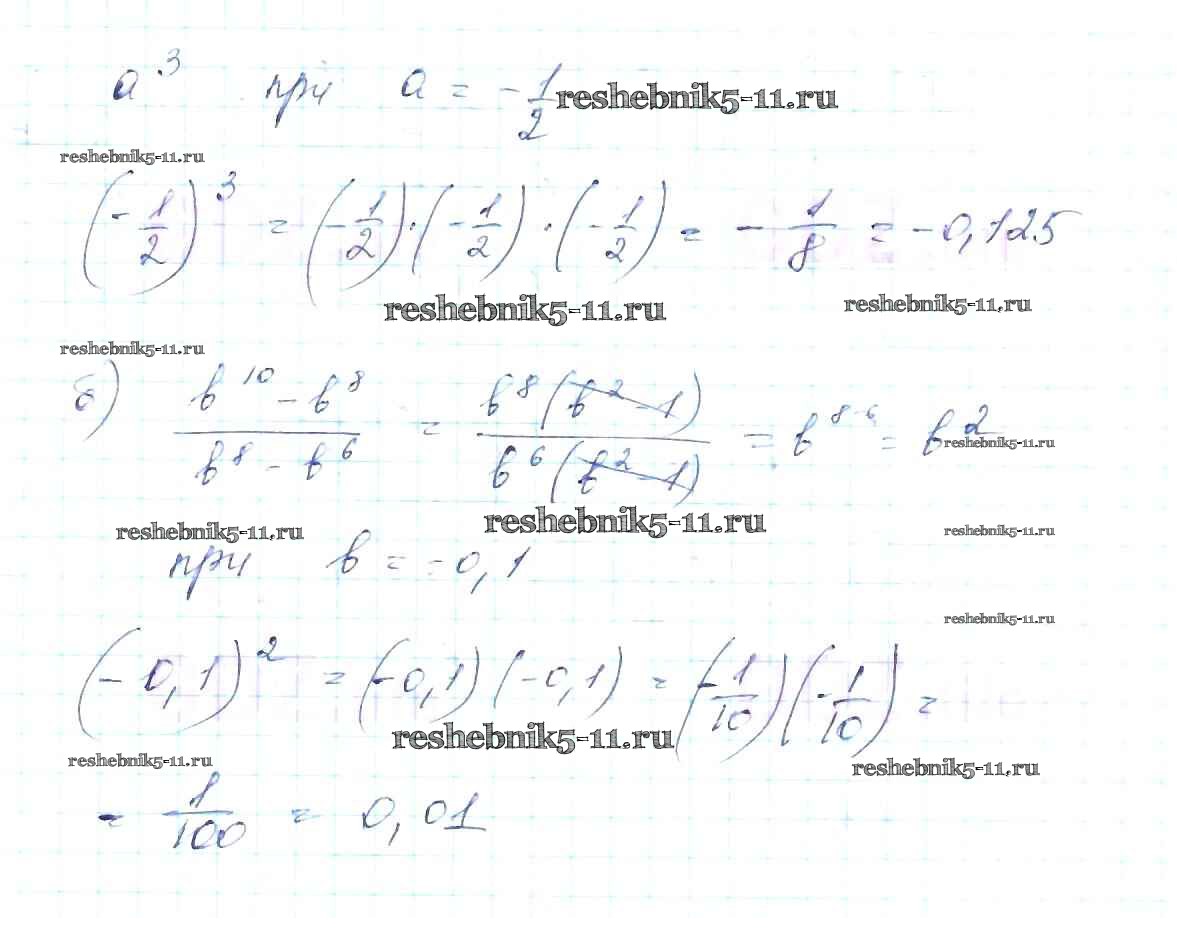 a³ при a = -1/2 reshebnik5-11.ru
reshebnik5-11.ru
(-1/2)³ = (-1/2)·(-1/2)·(-1/2) = -1/8 = -0,125
reshebnik5-11.ru reshebnik5-11.ru
reshebnik5-11.ru
б) (b¹⁰ - b⁸)/(b⁸ - b⁶) = b⁸(b² - 1)/b⁶(b² - 1) = b⁸⁻⁶ = b²
reshebnik5-11.ru
reshebnik5-11.ru reshebnik5-11.ru reshebnik5-11.ru
при b = -0,1
reshebnik5-11.ru
(-0,1)² = (-0,1)(-0,1) = (-1/10)(-1/10) =
reshebnik5-11.ru
reshebnik5-11.ru reshebnik5-11.ru
= 1/100 = 0,01